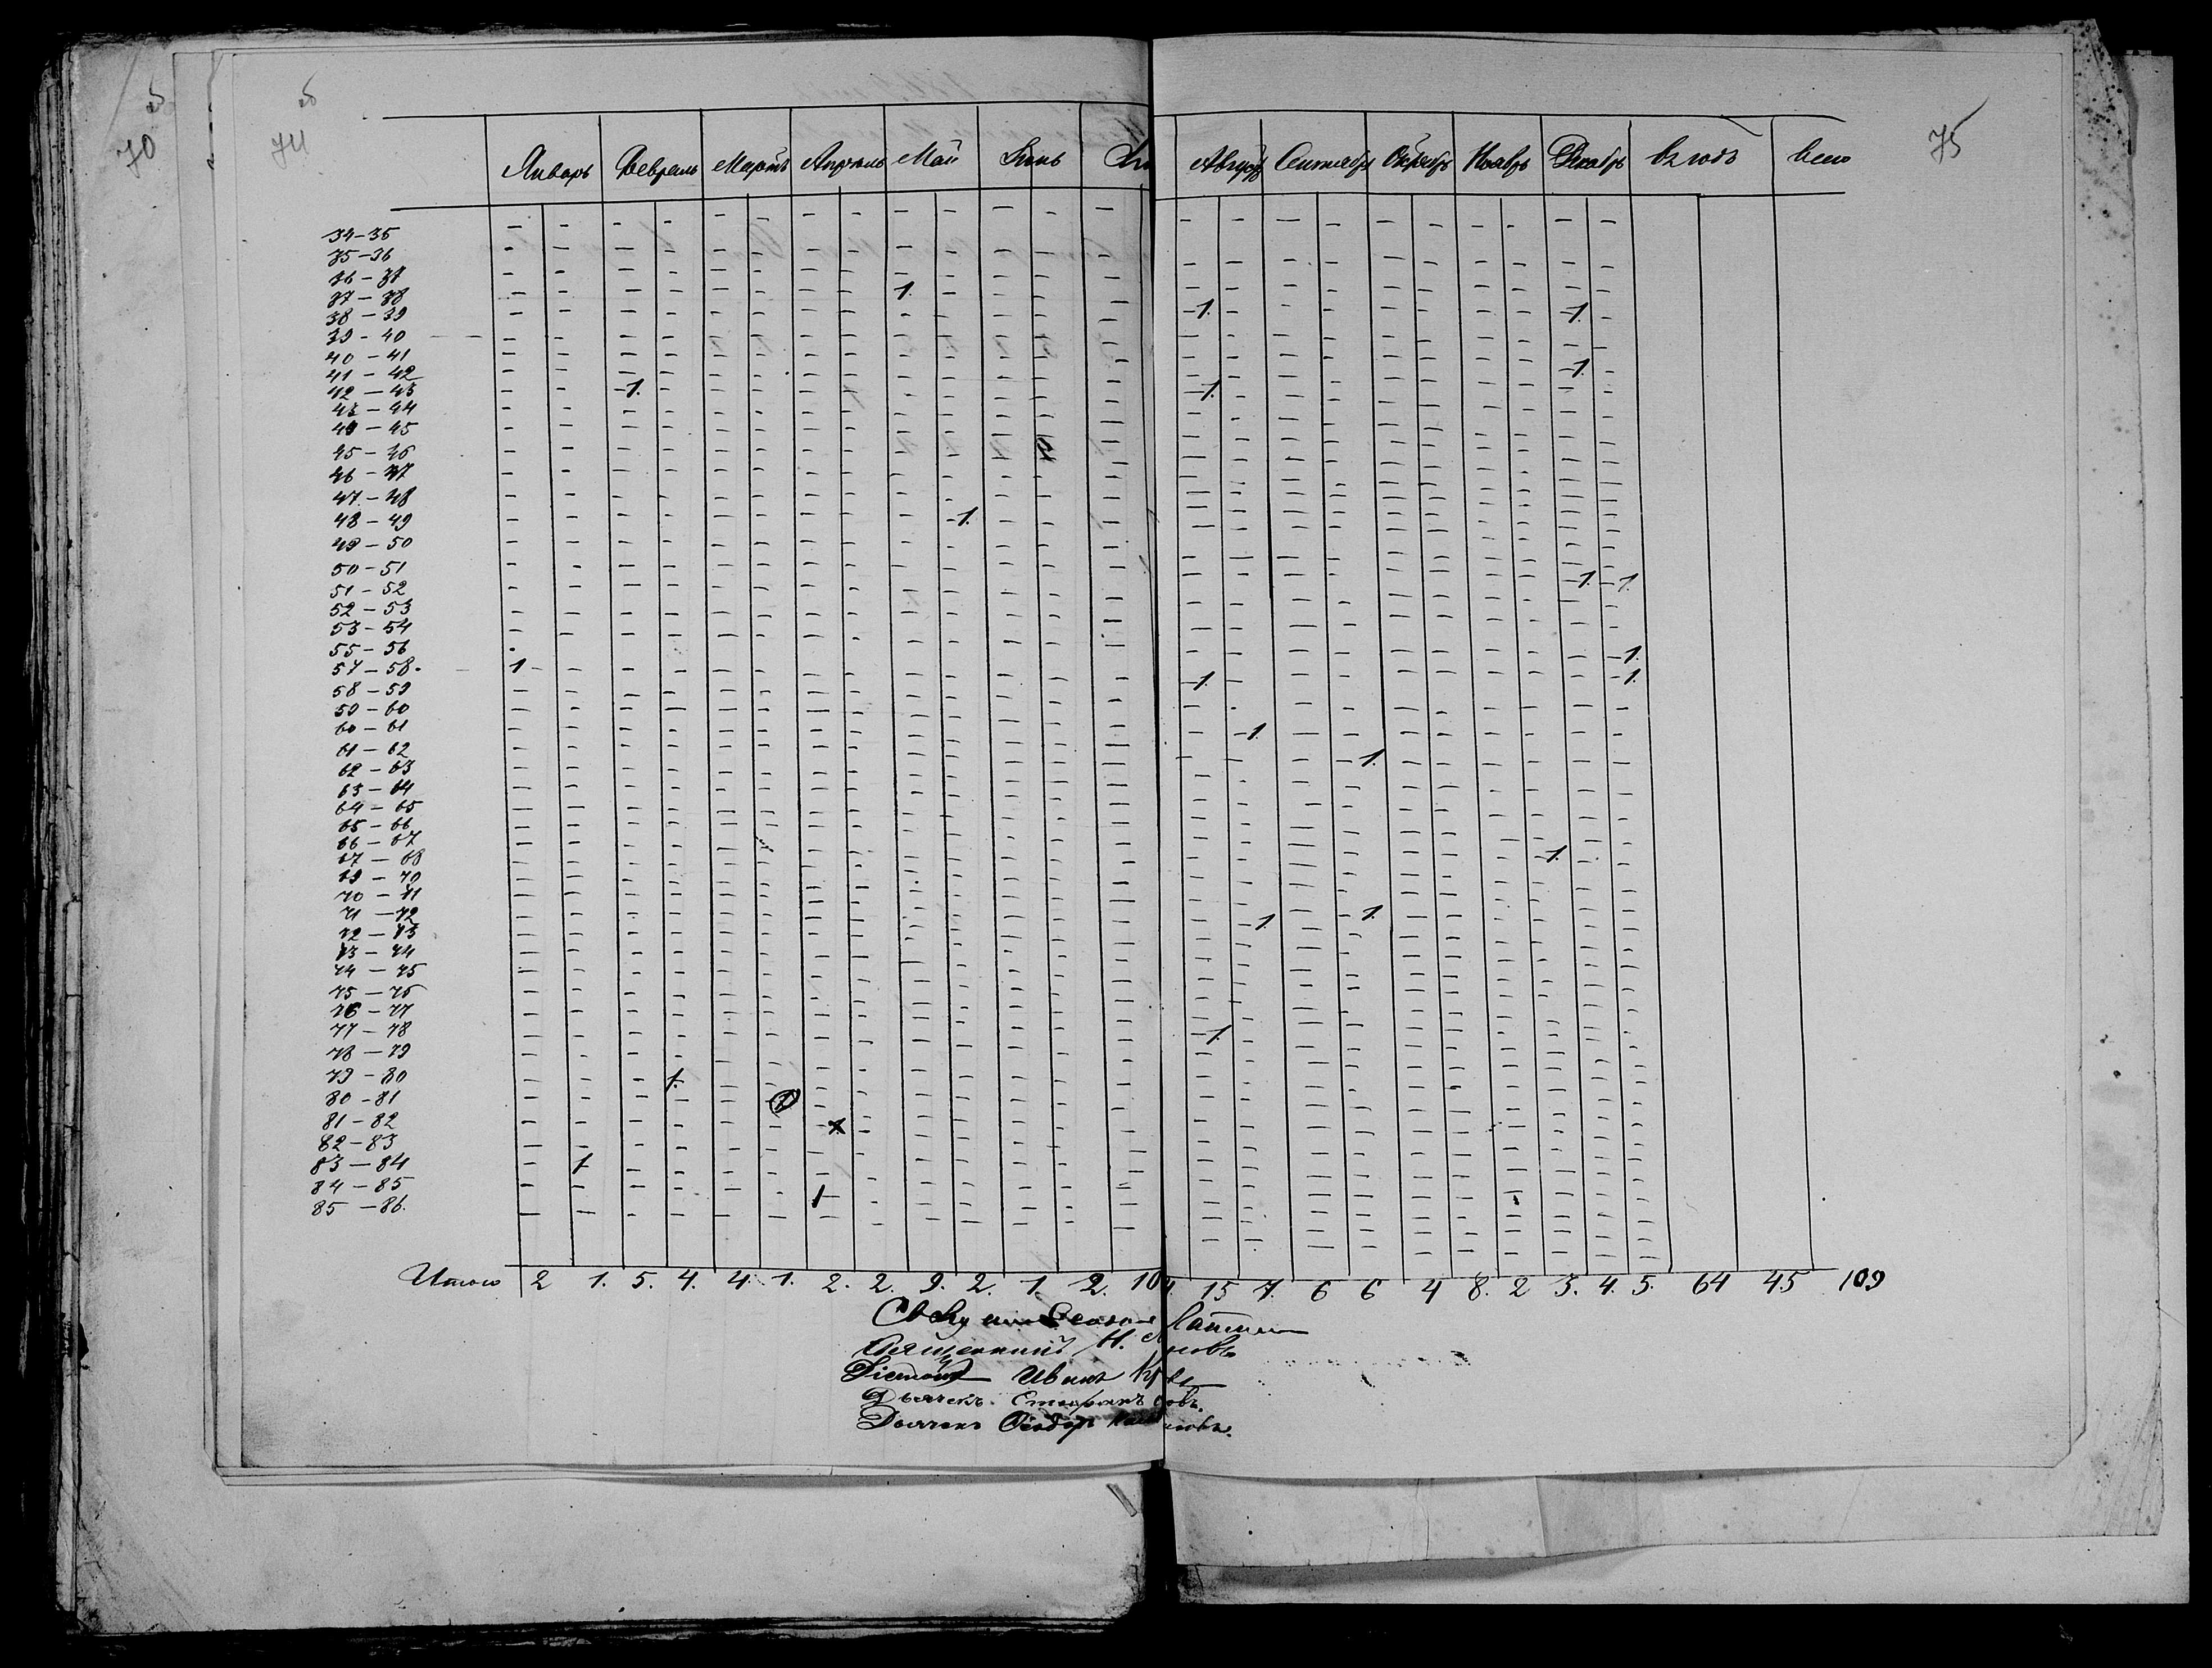 70
74
75
Январь Февраль Мартъ Апрѣль Май Іюнь Августъ Сентябрь Октябрь Ноябрь Декабрь въ годъ всего
34-35
35-36
36-37
37-38 1.
38-39 1. 1.
39-40
40-41
41-42 1.
42-43 1. 1.
43-44
44-45
45-46
46-47
47-48
48-49 1.
49-50
50-51
51-52 1. 1.
52-53
53-54
55-56 1.
57-58. 1 1. 1.
58-59
59-60
60-61 1.
61-62 1.
62-63
63-64
64-65
65-66
66-67
67-68 1.
69-70
70-71
71-72 1. 1.
72-73
73-74
74-75
75-76
76-77
77-78 1.
78-79
79-80 1.
80-81 1
81-82
82-83
83-84 1
84-85 1
85-86.
Итого 2 1. 5. 4. 4. 1. 2. 2. 9. 2. 1. 2. 10 15 7. 6 6 4 8. 2 3. 4. 5. 64 45 109
Священникъ Н.
Иванъ
Дьячекъ
Дьячекъ Ѳеодоръ